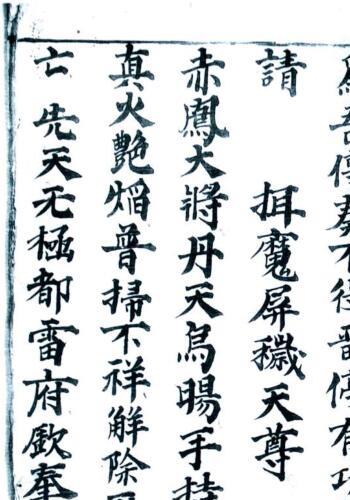 吾不停有
請 魔屏穢天尊
赤鳳大將丹天烏暘手持
真火艷熖普掃不祥解除
亡 先天无極都雷府欽奉